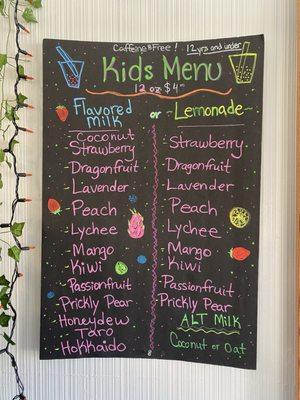 Caffeine Free! 12 yrs and under
Kids Menu
12 oz $4
Flavored Milk or Lemonade
- Coconut
- Strawberry
- Dragonfruit
- Lavender
- Peach
- Lychee
- Mango
- Kiwi
- Passionfruit
- Prickly Pear
- Honeydew
- Taro
- Hokkaido
- Strawberry
- Dragonfruit
- Lavender
- Peach
- Lychee
- Mango
- Kiwi
- Passionfruit
- Prickly Pear
ALT Milk
Coconut or Oat